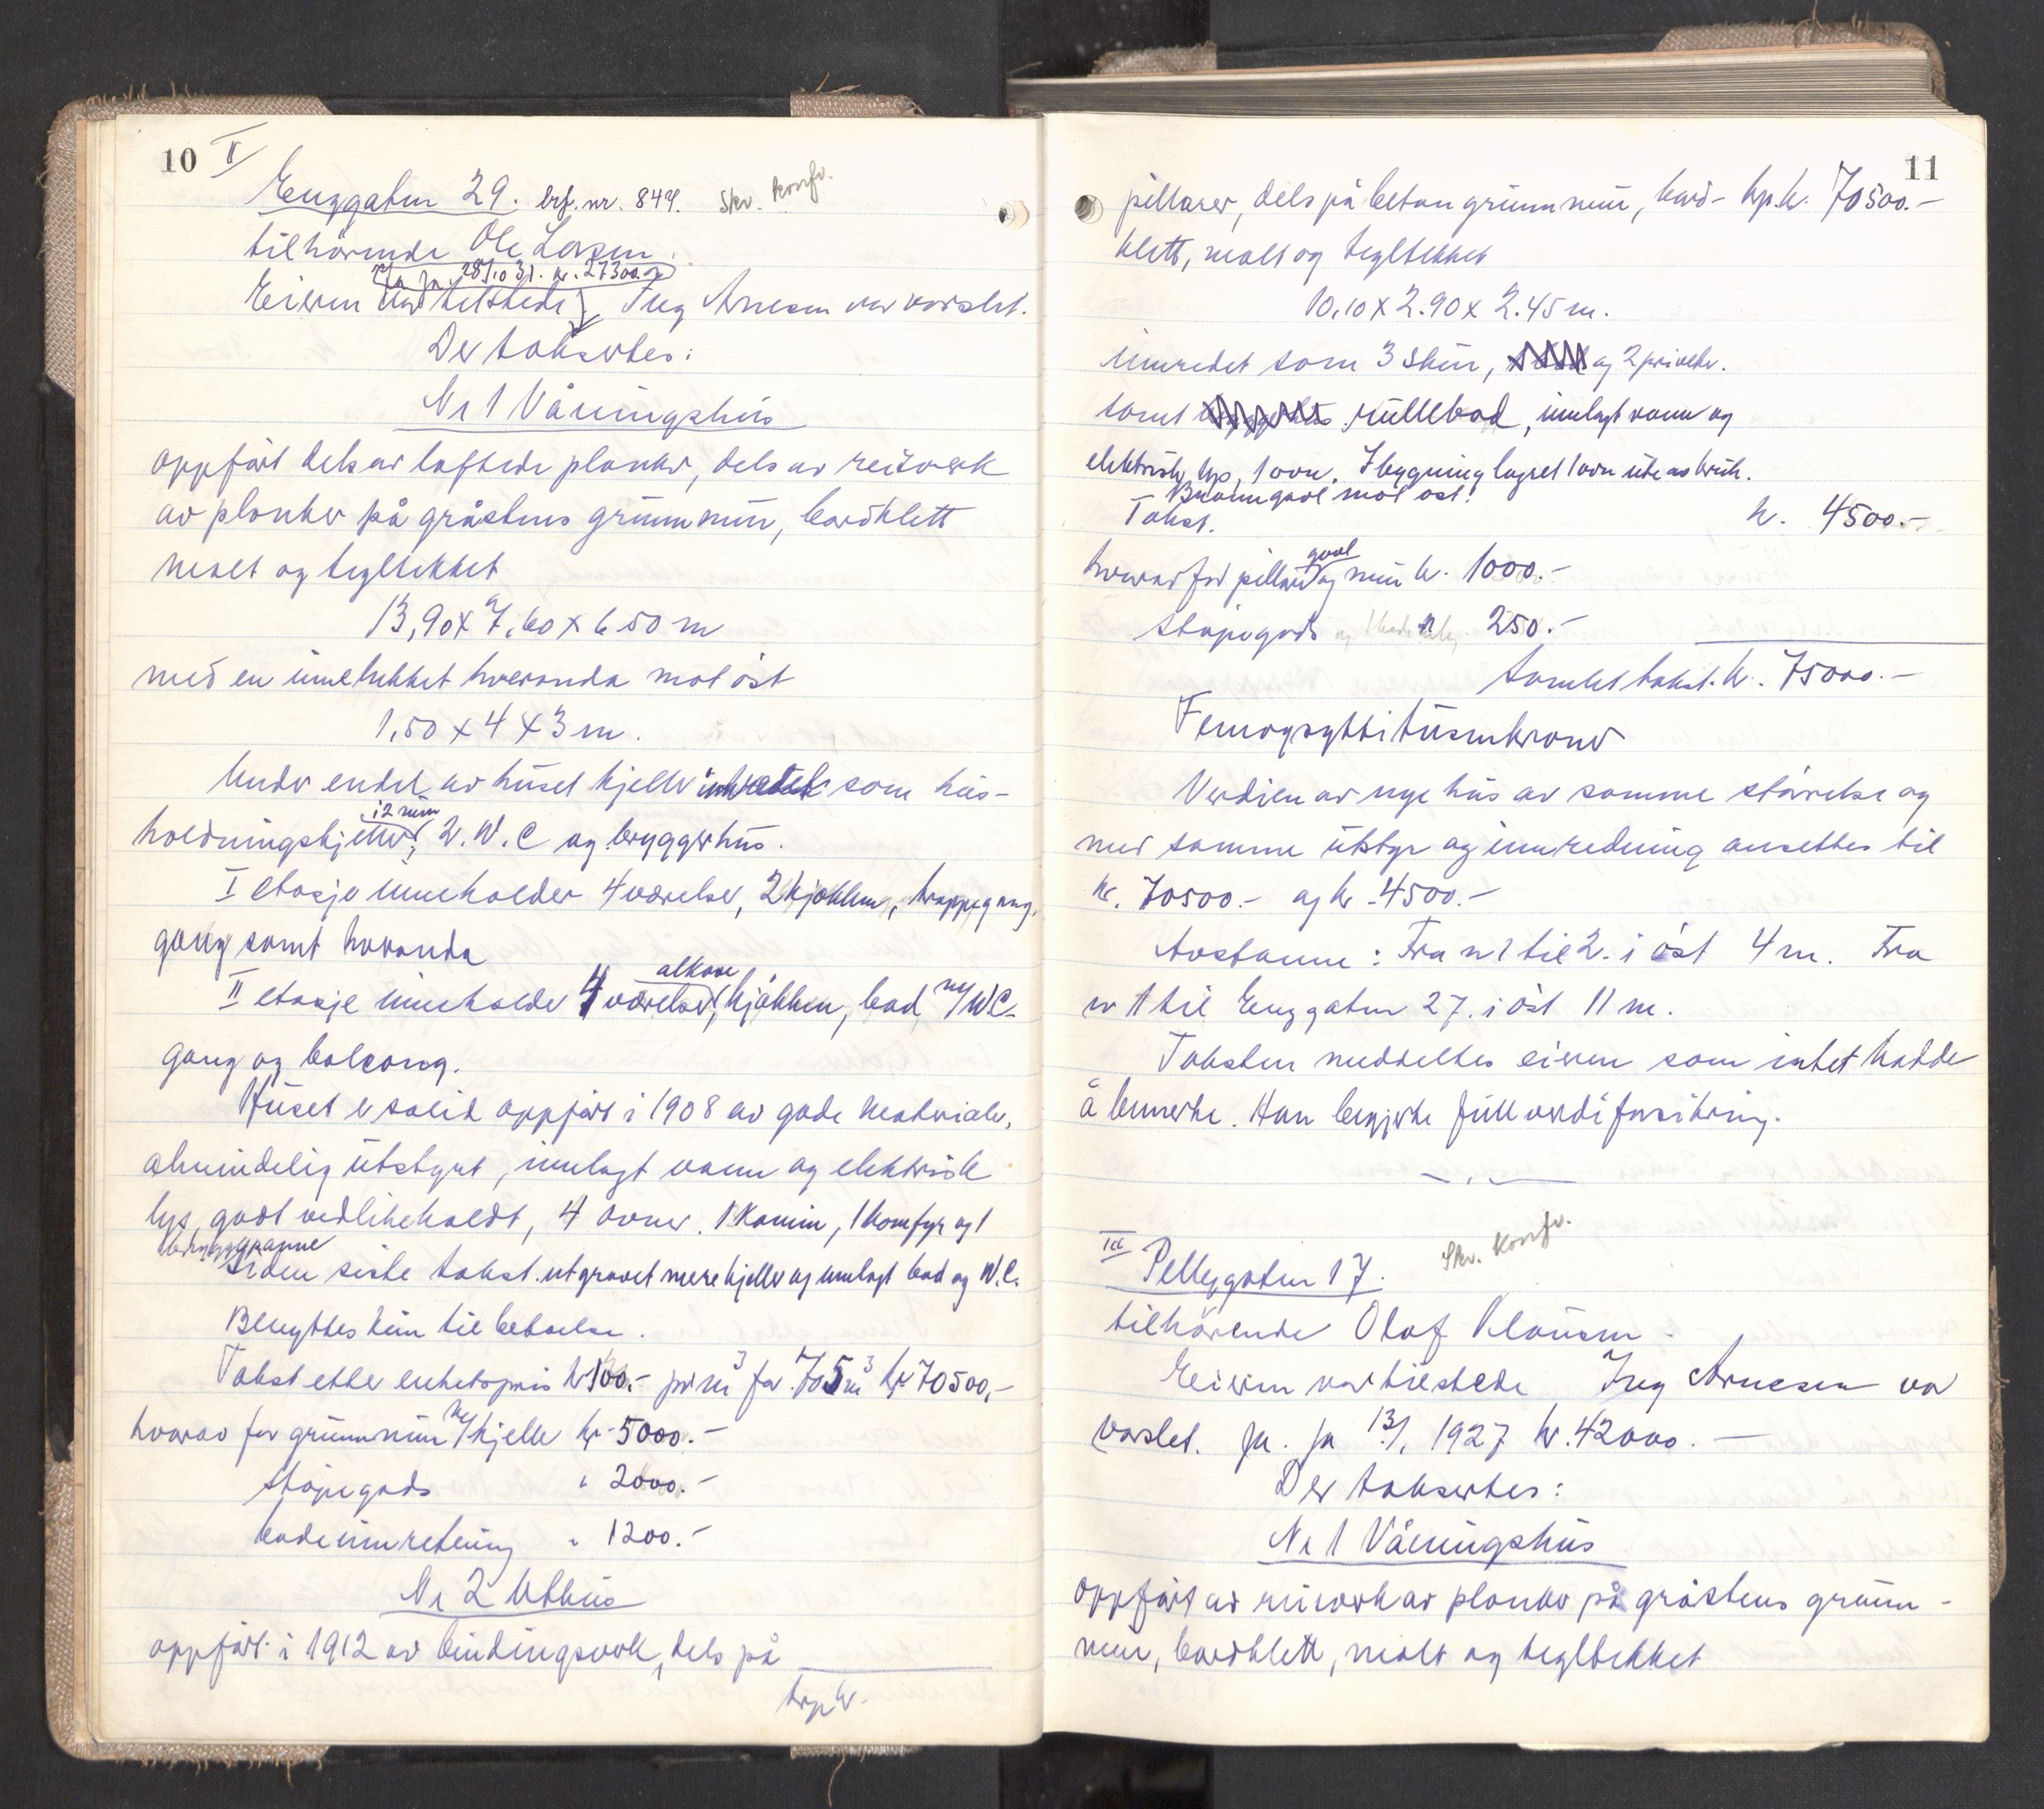 10 II
Enggaten 29. brf. nr. 849. Skr. Konfr.
tilhörende Ole Larsen.
Fr. Ja. 28/10 31. kr. 27300.-
Eieren var tilstede, Ing Arnesen var varslet.
Der taksertes:
Nr 1 Våningshus
oppfört dels av laftede planker, dels av reisverk
av planker på gråstens grunnmur, bordklett
malt og tegltekket
13,90 x 7,60 x 6 50 m
med en innelukket hveranda mot öst
1,50 x 4 x 3 m.
Under endel av huset kjeller innredet som hus-
holdningskjeller i 2 rum, 2. W.C og bryggerhus.
I etasje inneholder 4 værelser, 2 kjökken, trappegang,
gang samt hveranda
II etasje inneholder 4 værelser, alkove kjökken, bad m/ W.C-
gang og balcong.
Huset er solid oppfört i 1908 av gode materialer,
almindelig utstyrt, innlagt vann og elektrisk
lys, godt vedlikeholdt, 4 ovner. 1 Kamin, 1 komfyr og 1
bryggepanne
Siden siste takst utgravet mere kjeller og innlagt bad og W.C.
Benyttes kun til beboelse.
Takst etter enhetspris kr 100.- pr m³ for 705 m³ kr 70500,-
hvorav for grunnmur m/ kjeller kr. 5000.-
Støpegods " 2000.-
badeinnretning " 1200.-
Nr 2 Uthus
oppfört i 1912 av bindingsverk, dels på
trp kr.
11
pillarer, dels på beton grunnmur, bord- trp. kr. 70500.-
klett, malt og tegltekket
10,10 x 2.90 x 2.45 m.
innredet som 3 skur, og 2 priveter.
samt rullebod, innlagt vann og
elektrisk lys, 1 ovn. I bygning lagret 1 ovn ute av bruk.
Branngavl mot öst!
Takst. kr. 4500.-
hvorav for pillarer gavl og mur kr. 1000.-
støpegods kr. 250.-
Samlet takst. kr. 75000.-
Femogsyttitusenkroner
Verdien av nye hus av samme störrelse og
med samme utstyr og innredning ansettes til
kr. 70500.- og kr. 4500.-
Avstanne: Fra nr 1 til 2. i öst 4 m. Fra
nr 1 til Enggaten 27. i öst 11 m.
Taksten meddeltes eieren som intet hadde
å bemerke. Han begjerte full verdi forsikring.
III Skr. Konfr.
Pellygaten 17.
tilhörende Olaf Klausen.
Eieren var tilstede Ing Arnesen var
varslet. Fr. Ja 13/1. 1927 kr. 42000.-
Der taksertes:
Nr 1 Våningshus
oppfört av reisverk av planker på gråstens grunn-
mur, bordklett, malt og tegltekket